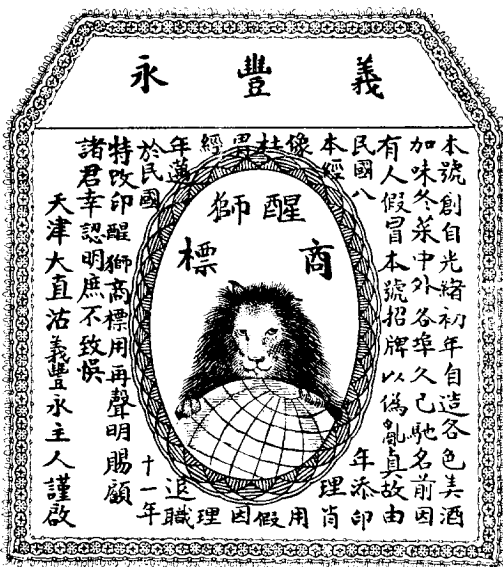 義豐永
本號創自光緒初年自造各色美酒
加味冬菜中外各埠久已馳名前因
有人假冒本號招牌以偽亂真故由
民國八年添印
本經理肖
像用
杜假
冒因
經理
年邁退職
於民國十一年
特改印醒獅商標用再聲明賜顧
諸君幸認明庶不致悞
天津大直沽義豐永主人謹啟
醒獅
商標